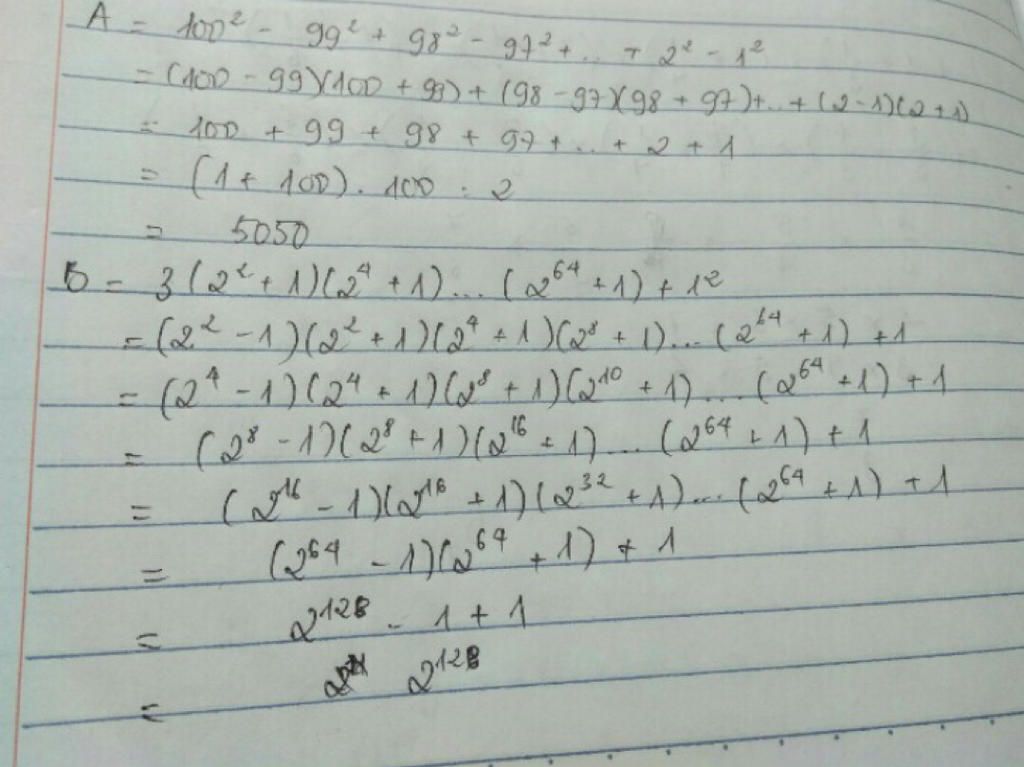 A = 100² - 99² + 98² - 97² + ... + 2² - 1²
= (100 - 99)(100 + 99) + (98 - 97)(98 + 97) + ... + (2 - 1)(2 + 1)
= 100 + 99 + 98 + 97 + ... + 2 + 1
= (1 + 100) . 100 : 2
= 5050
B = 3(2² + 1)(2⁴ + 1) ... (2⁶⁴ + 1) + 1²
= (2² - 1)(2² + 1)(2⁴ + 1)(2⁸ + 1) ... (2⁶⁴ + 1) + 1
= (2⁴ - 1)(2⁴ + 1)(2⁸ + 1)(2¹⁰ + 1) ... (2⁶⁴ + 1) + 1
= (2⁸ - 1)(2⁸ + 1)(2¹⁶ + 1) ... (2⁶⁴ + 1) + 1
= (2¹⁶ - 1)(2¹⁶ + 1)(2³² + 1) ... (2⁶⁴ + 1) + 1
= (2⁶⁴ - 1)(2⁶⁴ + 1) + 1
= 2¹²⁸ - 1 + 1
= 2¹²⁸